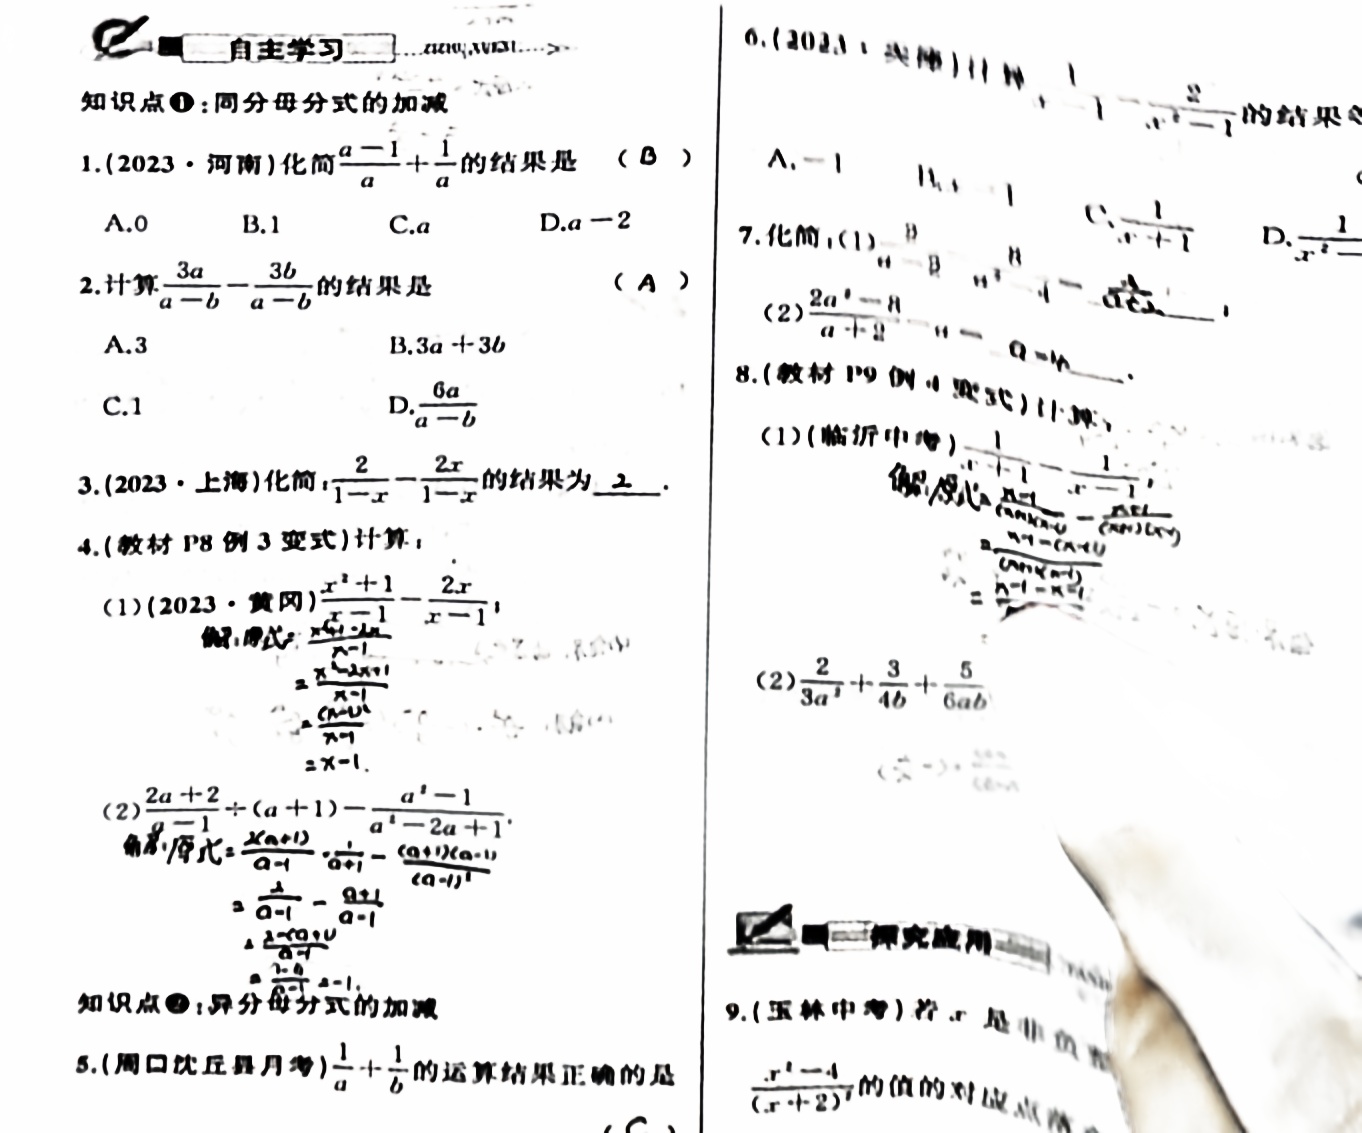 自主学习
知识点❶:同分母分式的加减
1.(2023·河南)化简 (a-1)/a + 1/a 的结果是 ( B )
A.0 B.1 C.a D.a-2
2.计算 3a/(a-b) - 3b/(a-b) 的结果是 ( A )
A.3 B.3a+3b
C.1 D. 6a/(a-b)
3.(2023·上海)化简: 2/(1-x) - 2x/(1-x) 的结果为 2 .
4.(教材 P8 例 3 变式)计算:
(1)(2023·黄冈) (x²+1)/(x-1) - 2x/(x-1);
解:原式= (x²+1-2x)/(x-1)
= (x²-2x+1)/(x-1)
= (x-1)²/(x-1)
=x-1.
(2) (2a+2)/(a-1) ÷(a+1)- (a²-1)/(a²-2a+1).
解:原式= 2(a+1)/(a-1) · 1/(a+1) - (a+1)(a-1)/(a-1)²
= 2/(a-1) - (a+1)/(a-1)
= (2-(a+1))/(a-1)
=-1.
知识点❷:异分母分式的加减
5.(周口沈丘县月考) 1/a + 1/b 的运算结果正确的是
( C )
6.(2023·天津)计算 1/(x-1) - 2/(x²-1) 的结果
A.-1 B.x-1 C. 1/(x+1) D.
7.化简:(1)
(2) (2a²-8)/(a+2) - a =
8.(教材 P9 例 4 变式)计算:
(1)(临沂中考) 1/(x+1) - 1/(x-1);
解:原式= (x-1)/((x+1)(x-1)) - (x+1)/((x+1)(x-1))
= (x-1-(x+1))/((x+1)(x-1))
= x-1-x-1
(2) 2/(3a²) + 3/(4b) + 5/(6ab)
探究应用
9.(玉林中考)若 x 是非负整
(x²-4)/(x+2)² 的值的对应点落